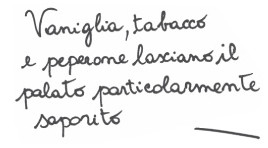 Vaniglia, tabacco
e peperone lasciano il
palato particolarmente
saporito